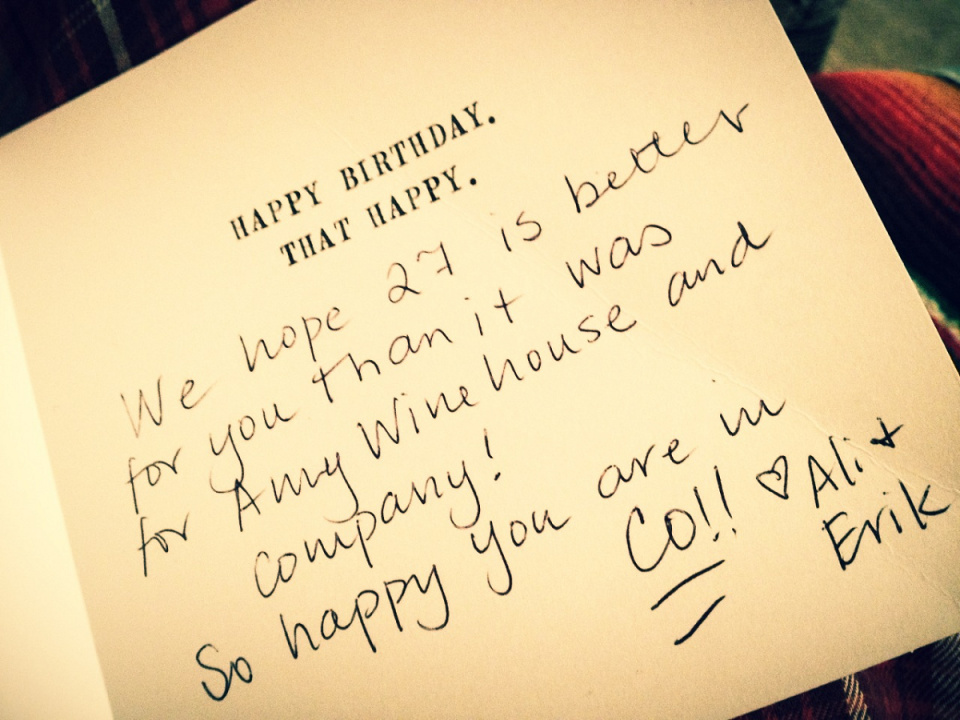 HAPPY BIRTHDAY.
THAT HAPPY.
We hope 27 is better
for you than it was
for Amy Winehouse and
company!
So happy you are in
CO!! ♡ Ali +
Erik